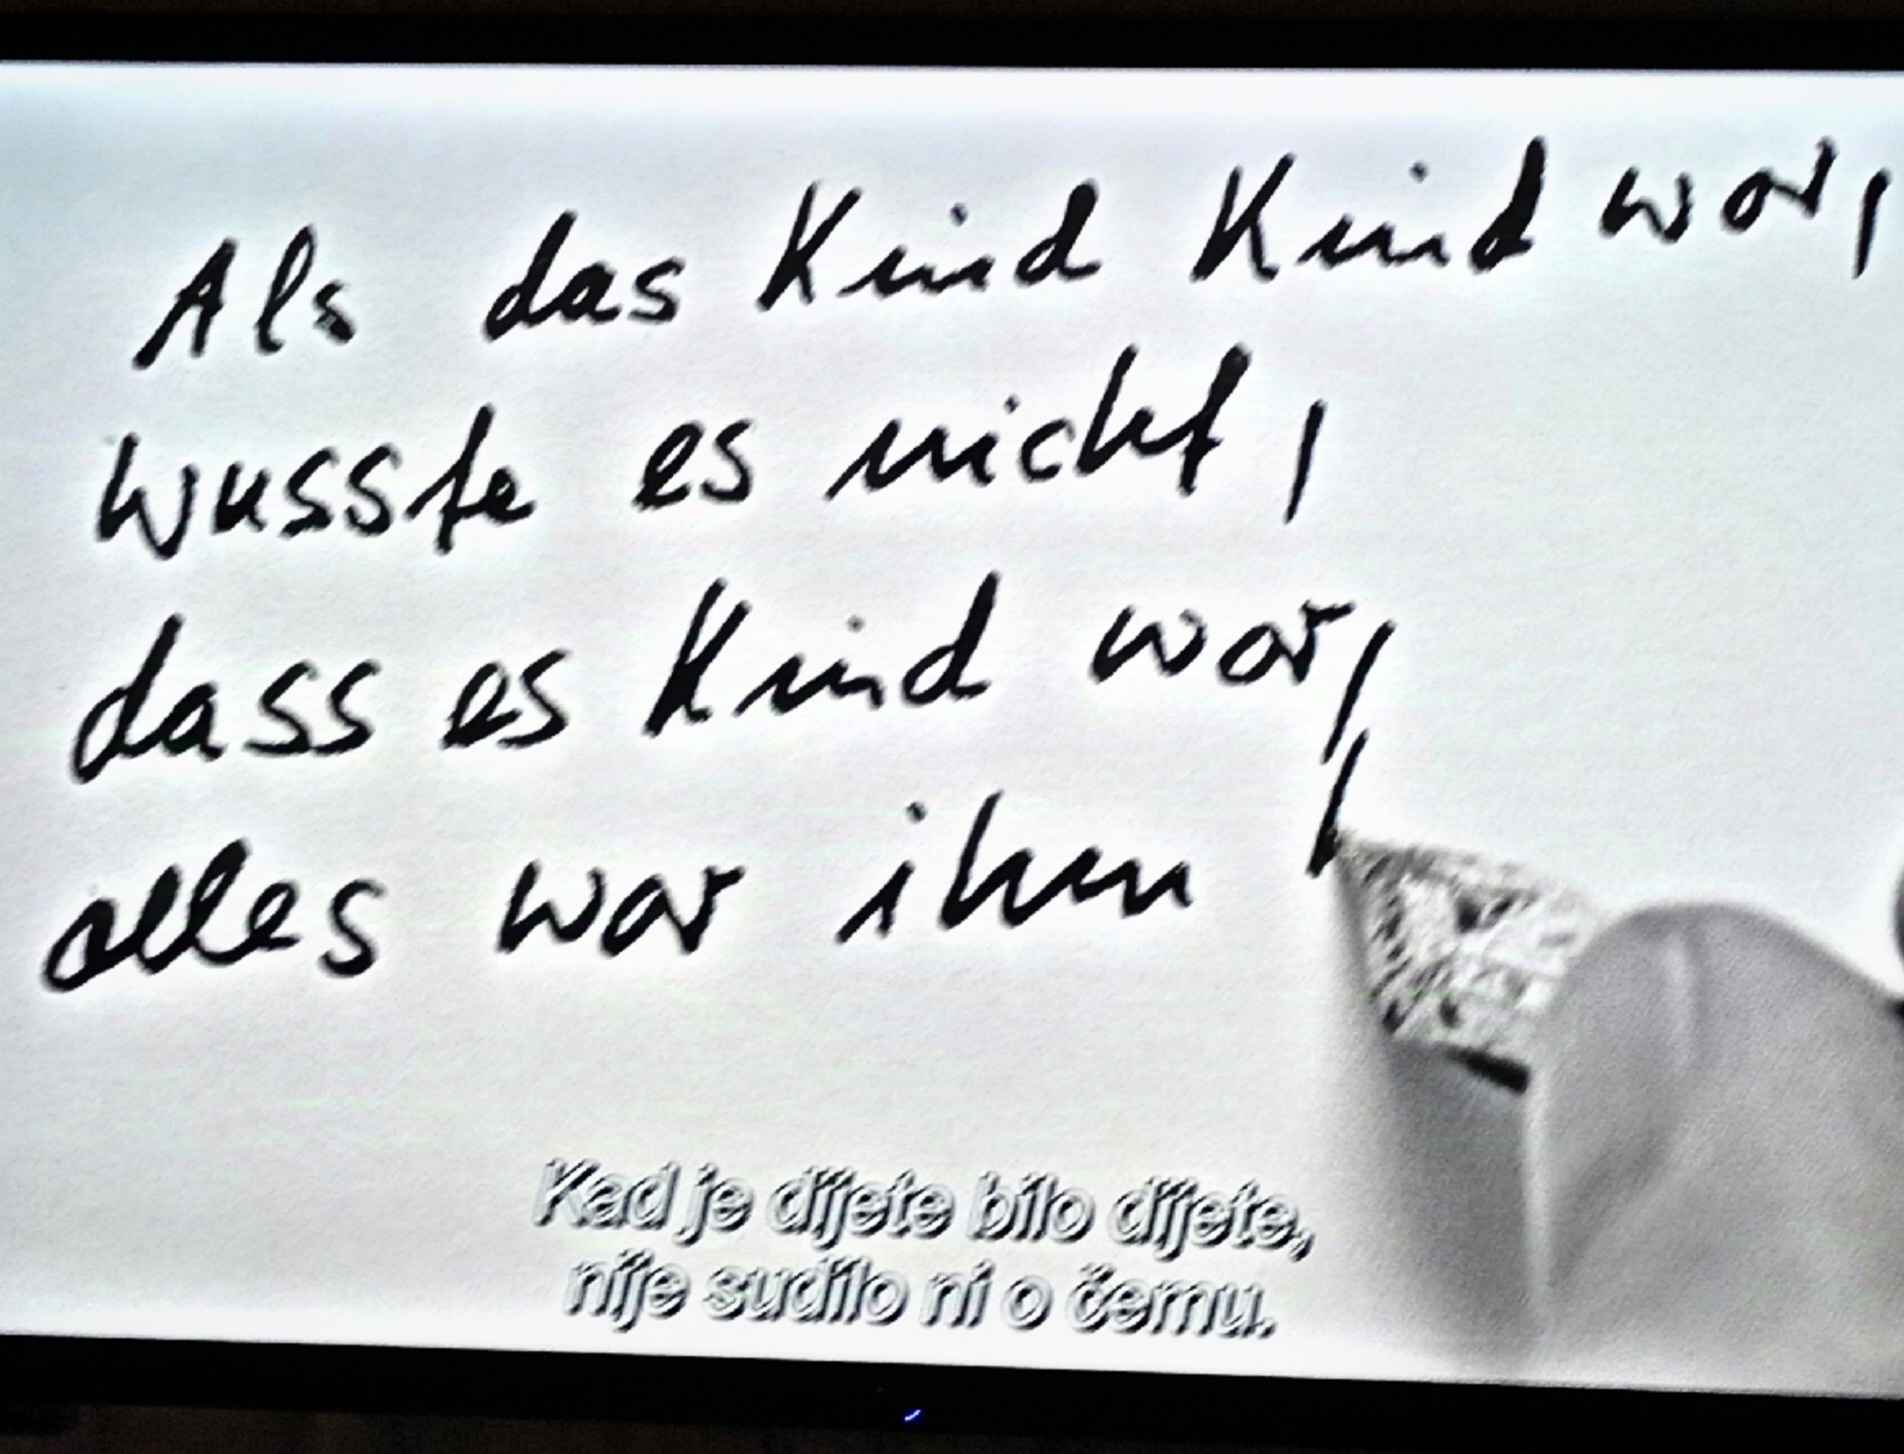 Als das Kind Kind war,
wusste es nicht,
dass es Kind war,
alles war ihm
Kad je dijete bilo dijete,
nije sudilo ni o čemu.